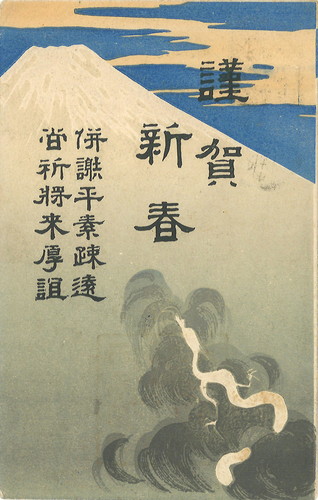 謹賀
新春
併謝平素疎遠
尚祈將来厚誼